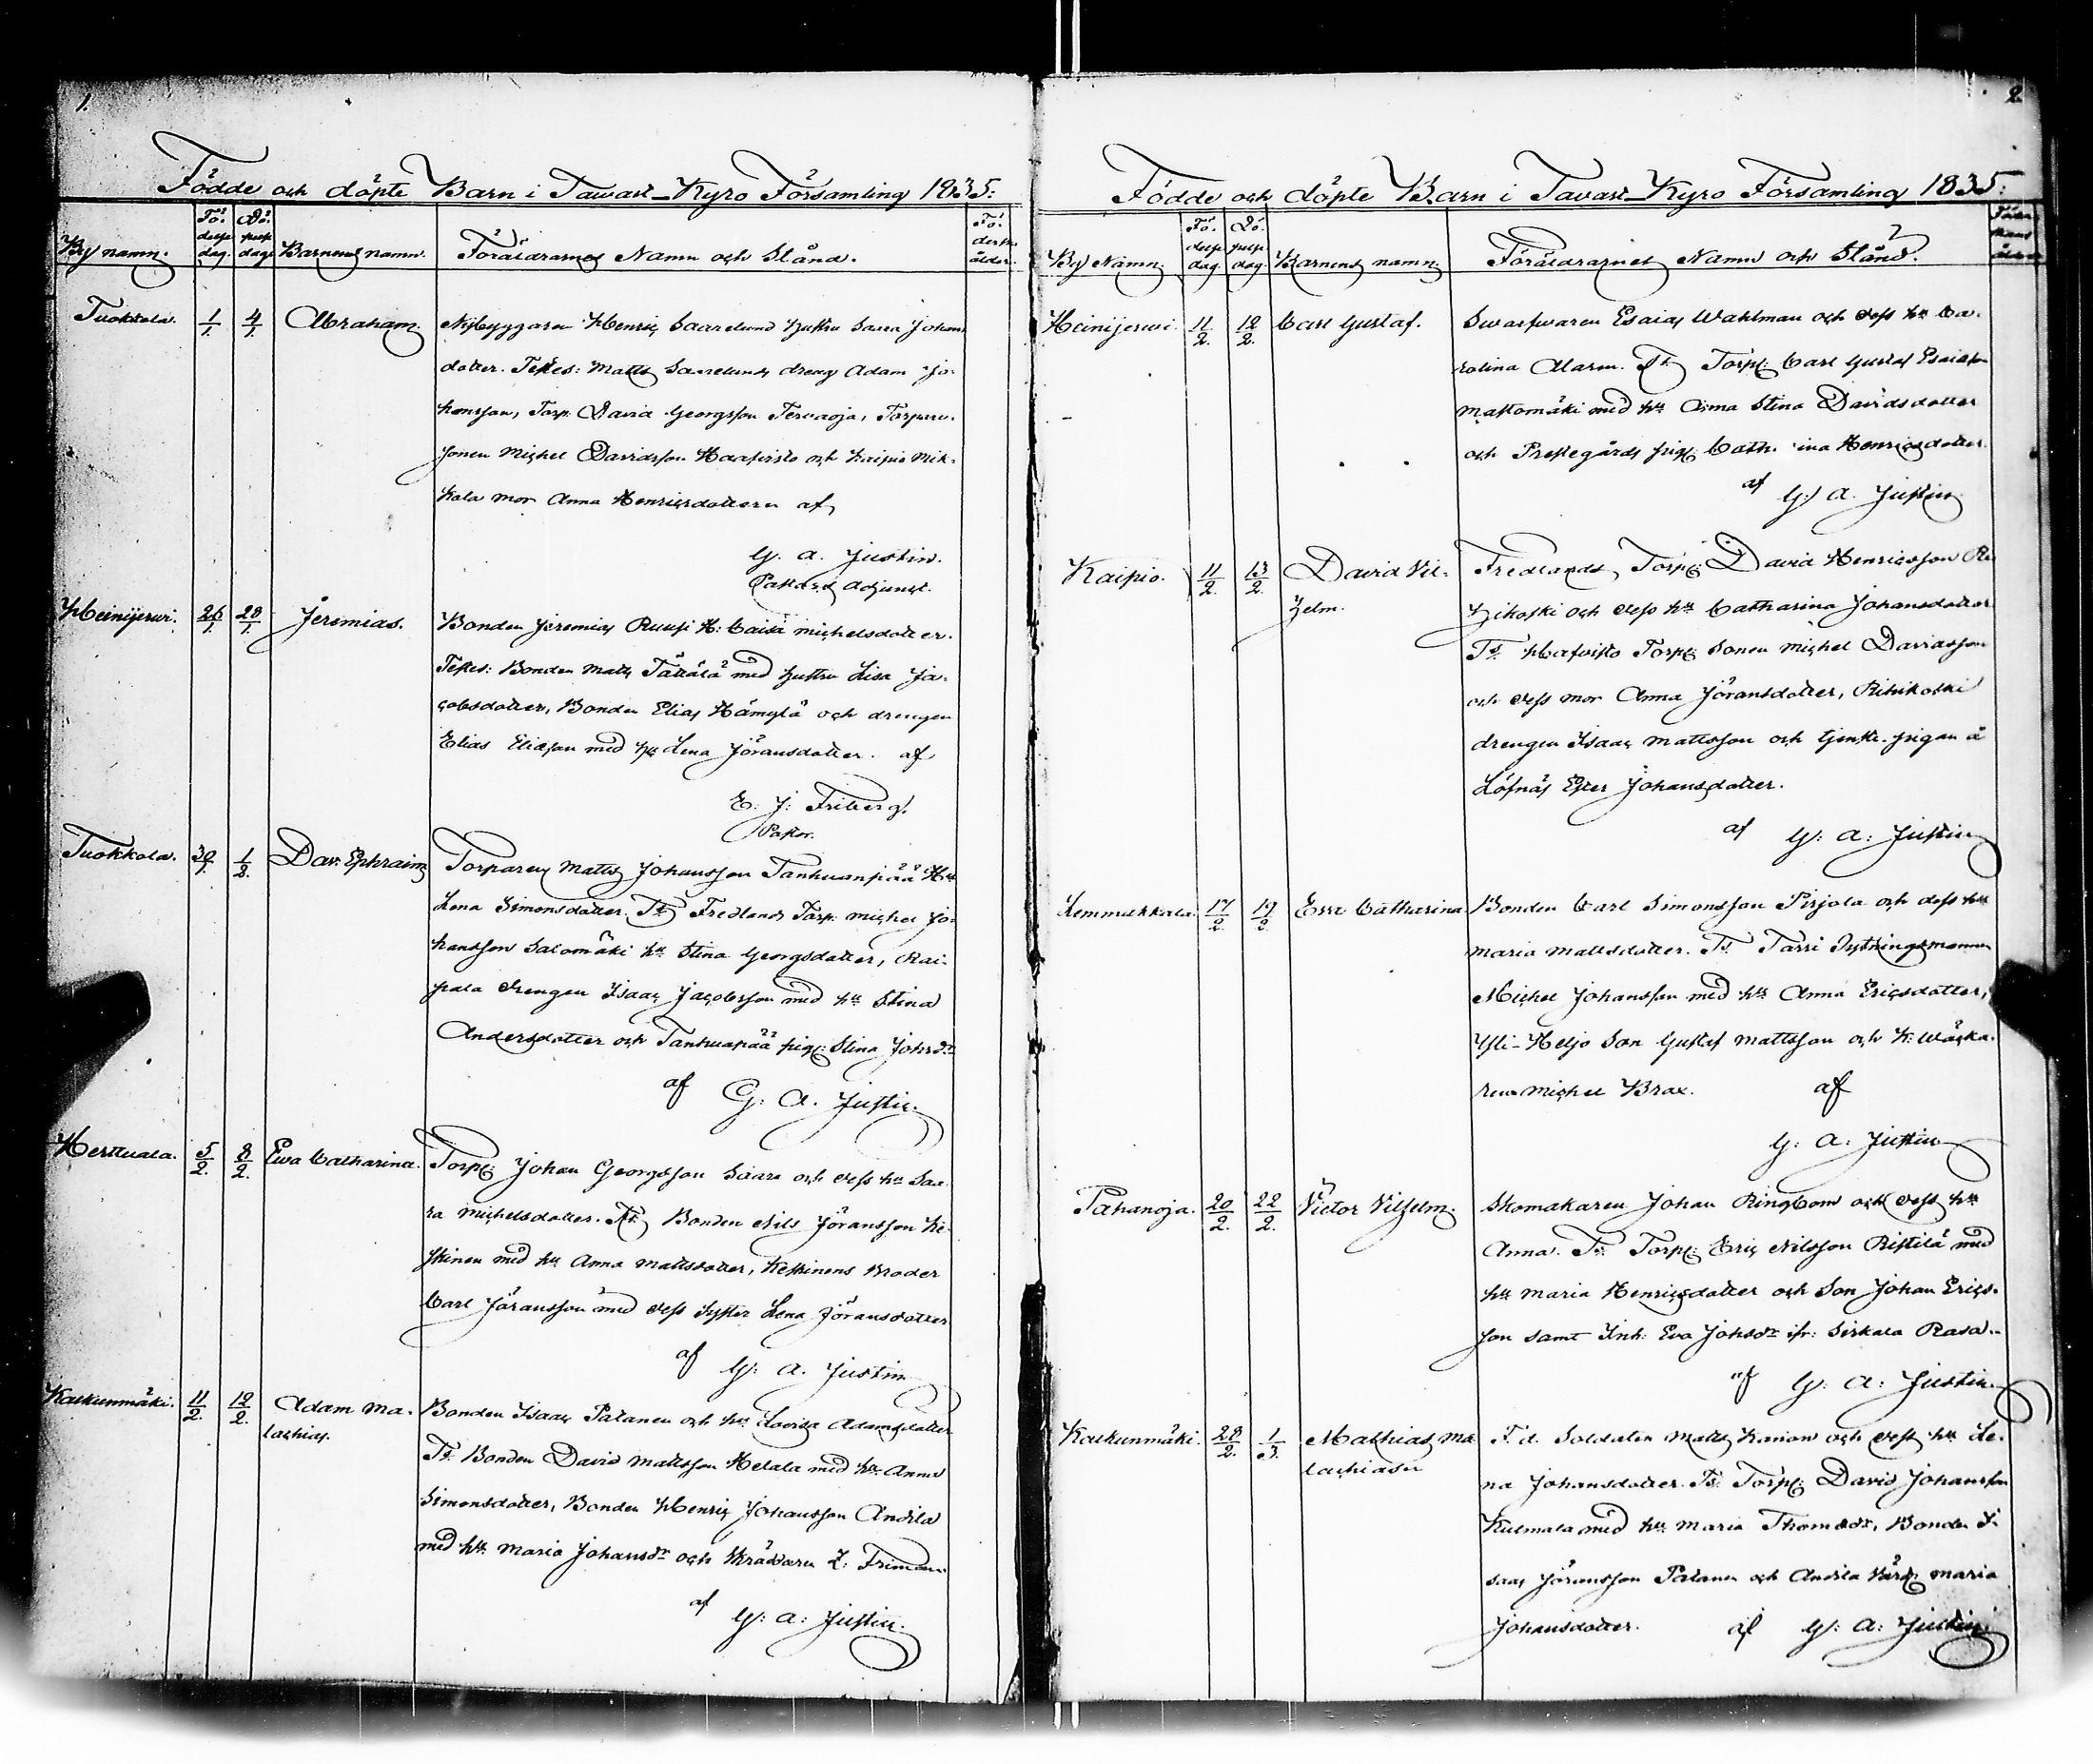 1.
Födde och döpte Barn i Tavast-Kyro Församling 1835:
By namn. Fö. delse dag. Dö. pelse dag. Barnens namn. Föräldrarnes Namn och Stånd. Fö. ålder.
Tuokkola. 1/1. 4/1. Abraham. Nybyggaren Henric Saarelund hustru Saara Johans
dotter. Testes: Matts Saarelunds dreng Adam Jo-
hansson, Torp: David Georgsson Tervaoja, Torpare-
sonen Michel Davidsson Haafvisto och Kaipio Mik-
kola mor Anna Henricsdotter af
G. A. Justin.
Pastors Adjunct.
Heinijerwi. 26/1. 28/1. Jeremias. Bonden Jeremias Ruusi H: Caisa Michelsdotter.
Testes: Bonden Matts Tättälä med hustru Lisa Ja-
cobsdotter, Bonden Elias Hämylä och drengen
Elias Eliasson med h:u Lena Jöransdotter. af
E. J. Friberg.
Pastor.
Tuokkola. 30/1. 1/2. Dav: Ephraim Torparen Matts Johansson Tanhuanpää H:u
Lena Simonsdotter. T:s Fredlands Torp: Michel Jo-
hansson Salomäki h:u Stina Georgsdotter, Rai-
pala drengen Isaac Jacobsson med h:u Stina
Andersdotter och Tanhuanpää pig: Stina Johsd:r
af G. A. Justin.
Herttuala. 5/2. 8/2. Ewa Catharina. Torp: Johan Georgsson Saari och dess h:u Saa-
ra Michelsdotter. T:s Bonden Nils Jöransson Ke-
skinen med h:u Anna Mattsdotter, Keskinens Broder
Carl Jöransson med dess syster Lena Jöransdotter
af G. A. Justin
Kaukunmäki. 11/2. 12/2. Adam Ma-
lachias. Bonden Isaac Palanen och h:u Lovisa Adamsdotter
T:s Bonden David Mattsson Helala med h:u Anna
Simonsdotter, Bonden Henric Johansson Andila
med h:u Maria Johansd:r och Skräddaren Z: Friman.
af G: A: Justin.
2.
Födde och döpte Barn i Tavast-Kyro Församling 1835:
By Namn. Fö. delse dag. Dö. pelse dag. Barnens namn Föräldrarnes Namn och Stånd.
Heinijerwi. 11/2. 12/2. Carl Gustaf. Svarfvaren Esaias Wahlman och dess h:u Ca-
rolina Alarm. T:s Torp: Carl Gustaf Esaiasson
Mattomäki med h:u Anna Stina Davidsdotter
och Prestegårds pig: Cath. ina Henricsdotter.
af G. A. Justin
Kaipio. 11/2. 13/2. David Vil-
helm. Fredlands Torp: David Henricsson Ri-
hikoski och dess h:u Catharina Johansdotter
T:s Hafvisto Torp: Sonen Michel Davidsson
och dess mor Anna Jöransdotter, Rihikoski
drengen Isaac Mattsson och tjenste-pigan å
Löfnäs Ester Johansdotter.
af G: A: Justin
Lemmakkala. 17/2. 19/2. Eva Catharina Bonden Carl Simonsson Pirjola och dess h:u
Maria Mattsdotter. T:s Tarri
Michel Johansson med h:u Anna Ericsdotter,
Yli-Heljo Son Gustaf Mattsson och K: Wäcka-
ren Michel Brax. af
G: A: Justin
Pahanoja. 20/2. 22/2. Victor Vilhelm. Skomakaren Johan Ringbom och dess h:u
Anna. T:s Torp: Eric Nilsson Ristilä med
h:u Maria Henricsdotter och Son Johan Erics-
son samt Inh: Eva Johsd:r ifr: Sirkala Rasa.
af G: A: Justin.
Kaukunmäki. 28/2. 1/3. Mathias Ma-
lachias F. d. Soldaten Matts Kanon och dess h:u Le-
na Johansdotter. T:s Torp: David Johansson
Kulmala med h:u Maria Thomasd:r, Bonden I-
saac Jöransson Palanen och Andila Värd: Maria
Johansdotter. af G: A: Justin.